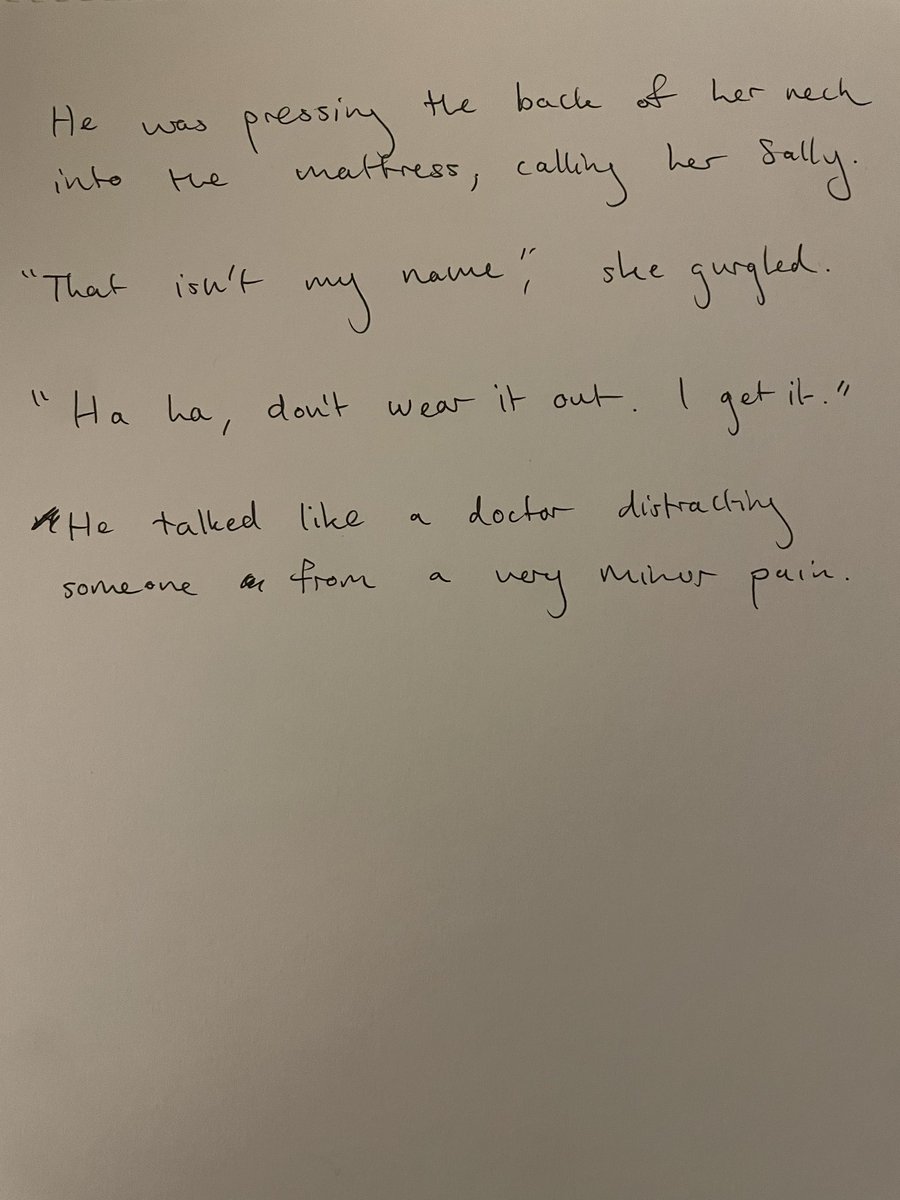 He was pressing the back of her neck
into the mattress, calling her Sally.
"That isn't my name", she gurgled.
"Ha ha, don't wear it out. I get it."
He talked like a doctor distracting
someone from a very minor pain.